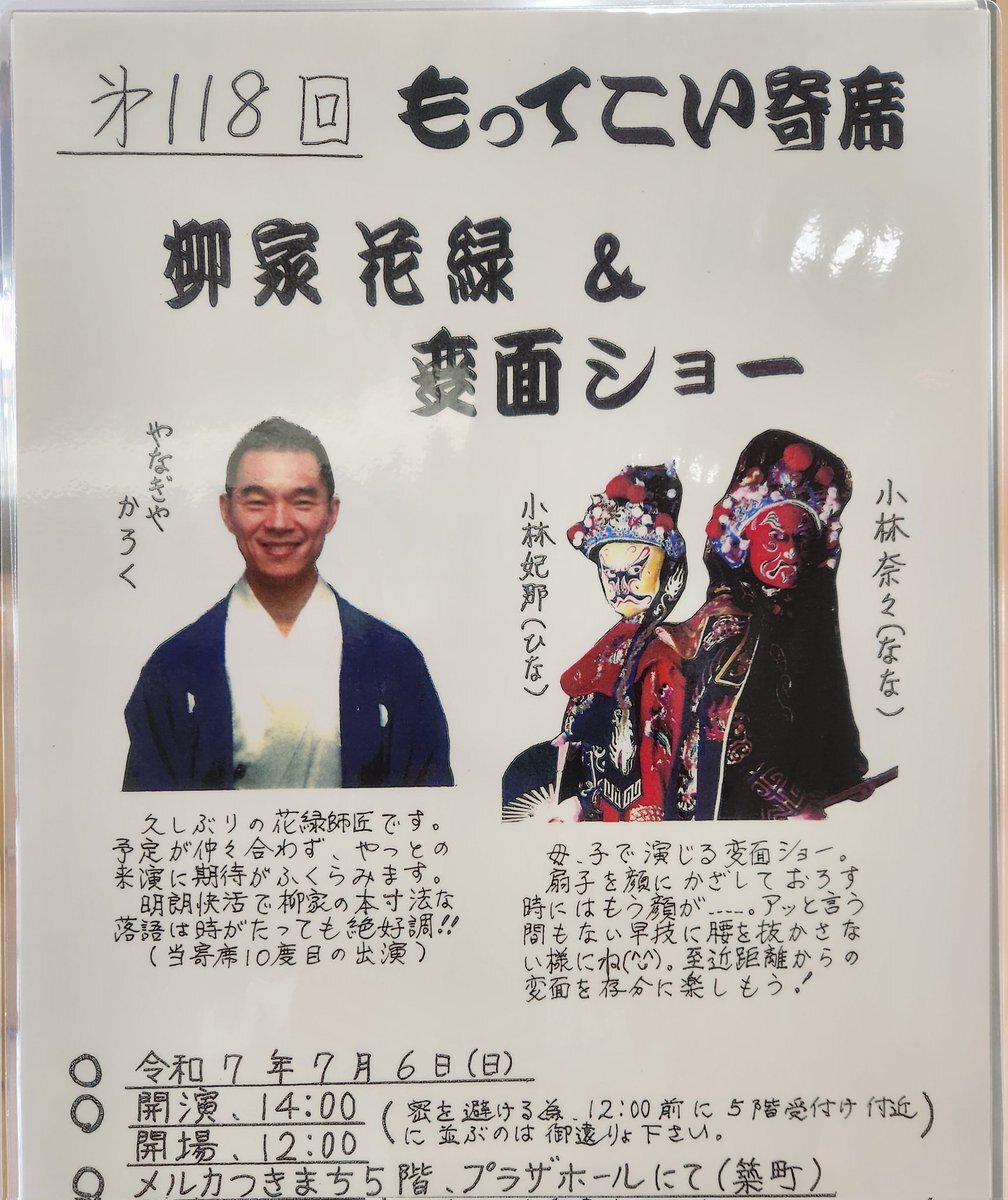 第118回 もってこい寄席
柳家花緑 &
変面ショー
やなぎや
かろく
小林妃那(ひな)
小林奈々(なな)
久しぶりの花緑師匠です。
予定が仲々合わず、やっとの
来演に期待がふくらみます。
明朗快活で柳家の本寸法な
落語は時がたっても絶好調!!
(当寄席10度目の出演)
母、子で演じる変面ショー。
扇子を顔にかざしておろす
時にはもう顔が-----。アッと言う
間もない早技に腰を抜かさな
い様にね(^^)。至近距離からの
変面を存分に楽しもう!
○ 令和7年7月6日(日)
○ 開演、14:00
開場、12:00
(密を避ける為、12:00前に5階受付け付近
に並ぶのは御遠りょ下さい。)
○ メルカつきまち5階、プラザホールにて(築町)